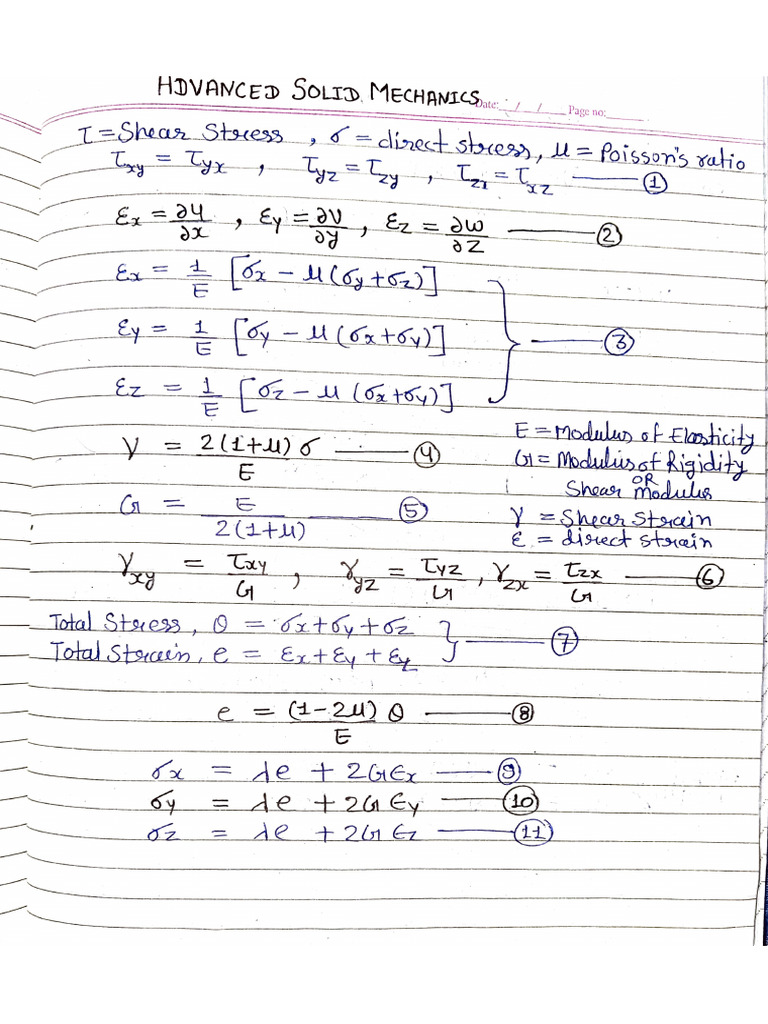 ADVANCED SOLID MECHANICS Date: / / Page no:
τ = Shear Stress, σ = direct stress, μ = Poisson's ratio
τxy = τyx , τyz = τzy , τzx = τxz —— ①
εx = ∂u/∂x , εy = ∂v/∂y , εz = ∂w/∂z —— ②
εx = 1/E [σx − μ(σy+σz)]
εy = 1/E [σy − μ(σx+σy)] —— ③
εz = 1/E [σz − μ(σx+σy)]
E = Modulus of Elasticity
γ = 2(1+μ)σ/E —— ④
G = Modulus of Rigidity
OR
Shear Modulus
G = E/2(1+μ) —— ⑤
γ = Shear Strain
ε = direct strain
γxy = τxy/G , γyz = τyz/G , γzx = τzx/G —— ⑥
Total Stress, θ = σx+σy+σz
Total Strain, e = εx+εy+εz —— ⑦
e = (1−2μ)θ/E —— ⑧
σx = λe + 2Gεx —— ⑨
σy = λe + 2Gεy —— ⑩
σz = λe + 2Gεz —— ⑪